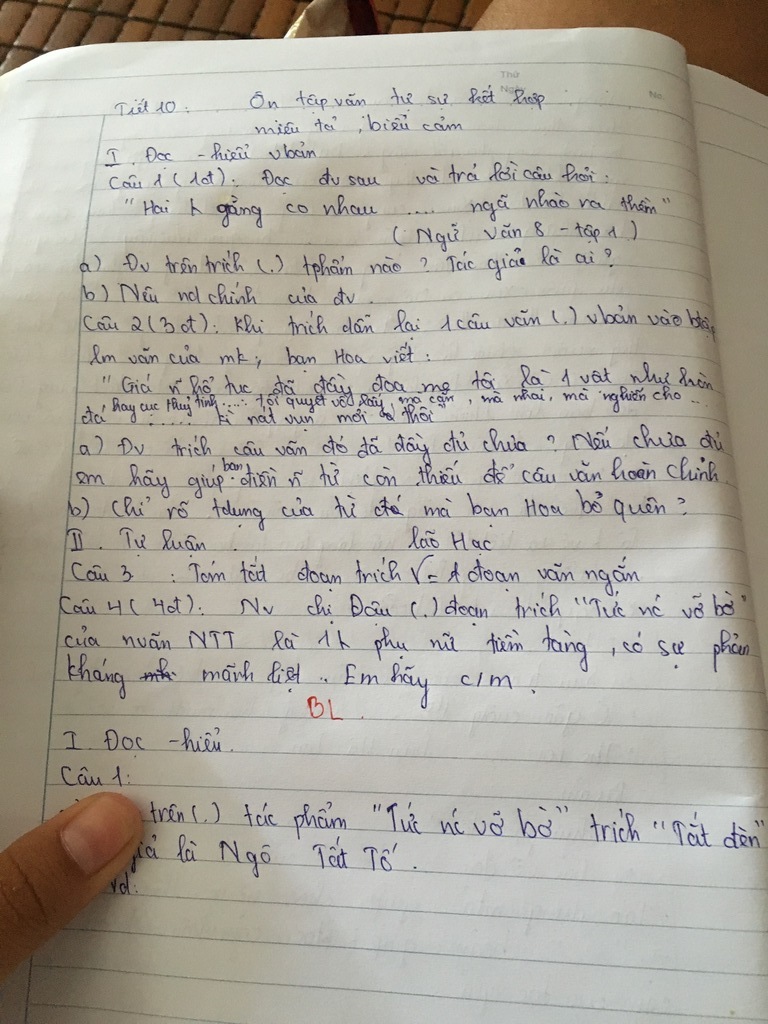 Thứ
Ngày
No.
Tiết 10: Ôn tập văn tự sự kết hợp
miêu tả, biểu cảm
I. Đọc - hiểu vbản
Câu 1 (1đ): Đọc đv sau và trả lời câu hỏi:
"Hai k gằng co nhau .... ngã nhào ra thềm"
(Ngữ văn 8 - tập 1)
a) Đv trên trích (.) tphẩm nào? Tác giả là ai?
b) Nêu nd chính của đv.
Câu 2 (3đ): Khi trích dẫn lại 1 câu văn (.) vbản vào
lm văn của mk, bạn Hoa viết:
"Giá n~ hổ tục đã đầy đọa mẹ tôi là 1 vật như hòn
đá hay cục thuỷ tinh .... tôi quyết vồ lấy, mà cắn, mà nhai, mà nghiến cho ...
...... kì nát vụn mới thôi
a) Đv trích câu văn đó đã đầy đủ chưa? Nếu chưa đủ
em hãy giúp bạn điền n~ từ còn thiếu để câu văn hoàn chỉnh
b) Chỉ rõ tdụng của từ mà bạn Hoa bỏ quên?
II. Tự luận. Lão Hạc
Câu 3: Tóm tắt đoạn trích = 1 đoạn văn ngắn
Câu 4 (4đ): Nv chị Dậu (.) đoạn trích "Tức nc vỡ bờ"
của nvăn NTT là 1 k phụ nữ tiềm tàng, có sự phản
kháng mãnh liệt. Em hãy c/m.
BL
I. Đọc - hiểu.
Câu 1:
trên (.) tác phẩm "Tức nc vỡ bờ" trích "Tắt đèn"
giả là Ngô Tất Tố.